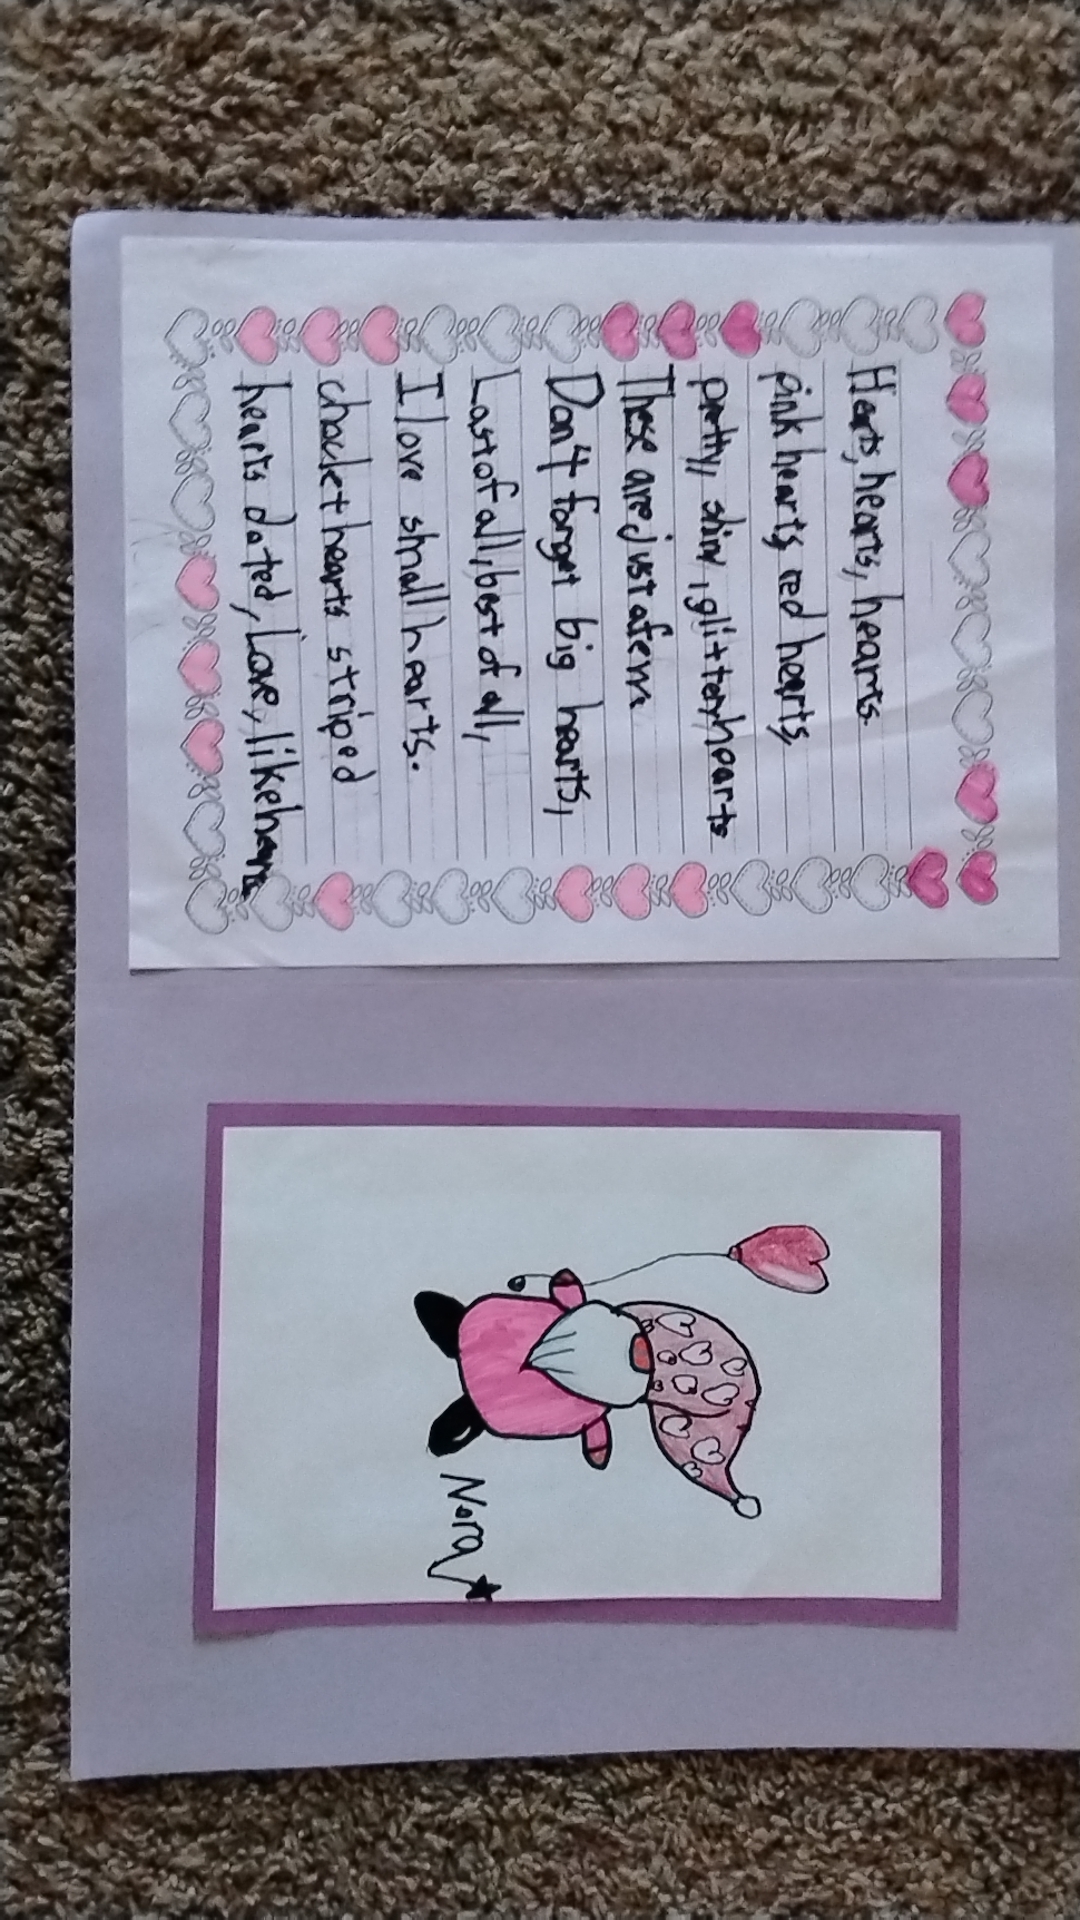 Hearts, hearts, hearts.
pink hearts, red hearts,
pretty, shiny, glittery hearts
These are just a few.
Don't forget big hearts,
Last of all, best of all,
I love small hearts.
choclet hearts striped
hearts doted, Love, like
Nora